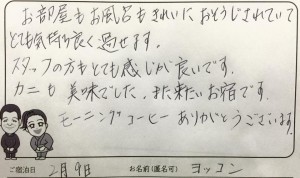 お部屋もお風呂もきれいにおそうじされていて
とても気持ち良く過せます。
スタッフの方もとても感じが良いです。
カニも美味でした。また来たいお宿です。
モーニングコーヒーありがとうございます。
ご宿泊日 2月9日 お名前(匿名可) ヨッコン